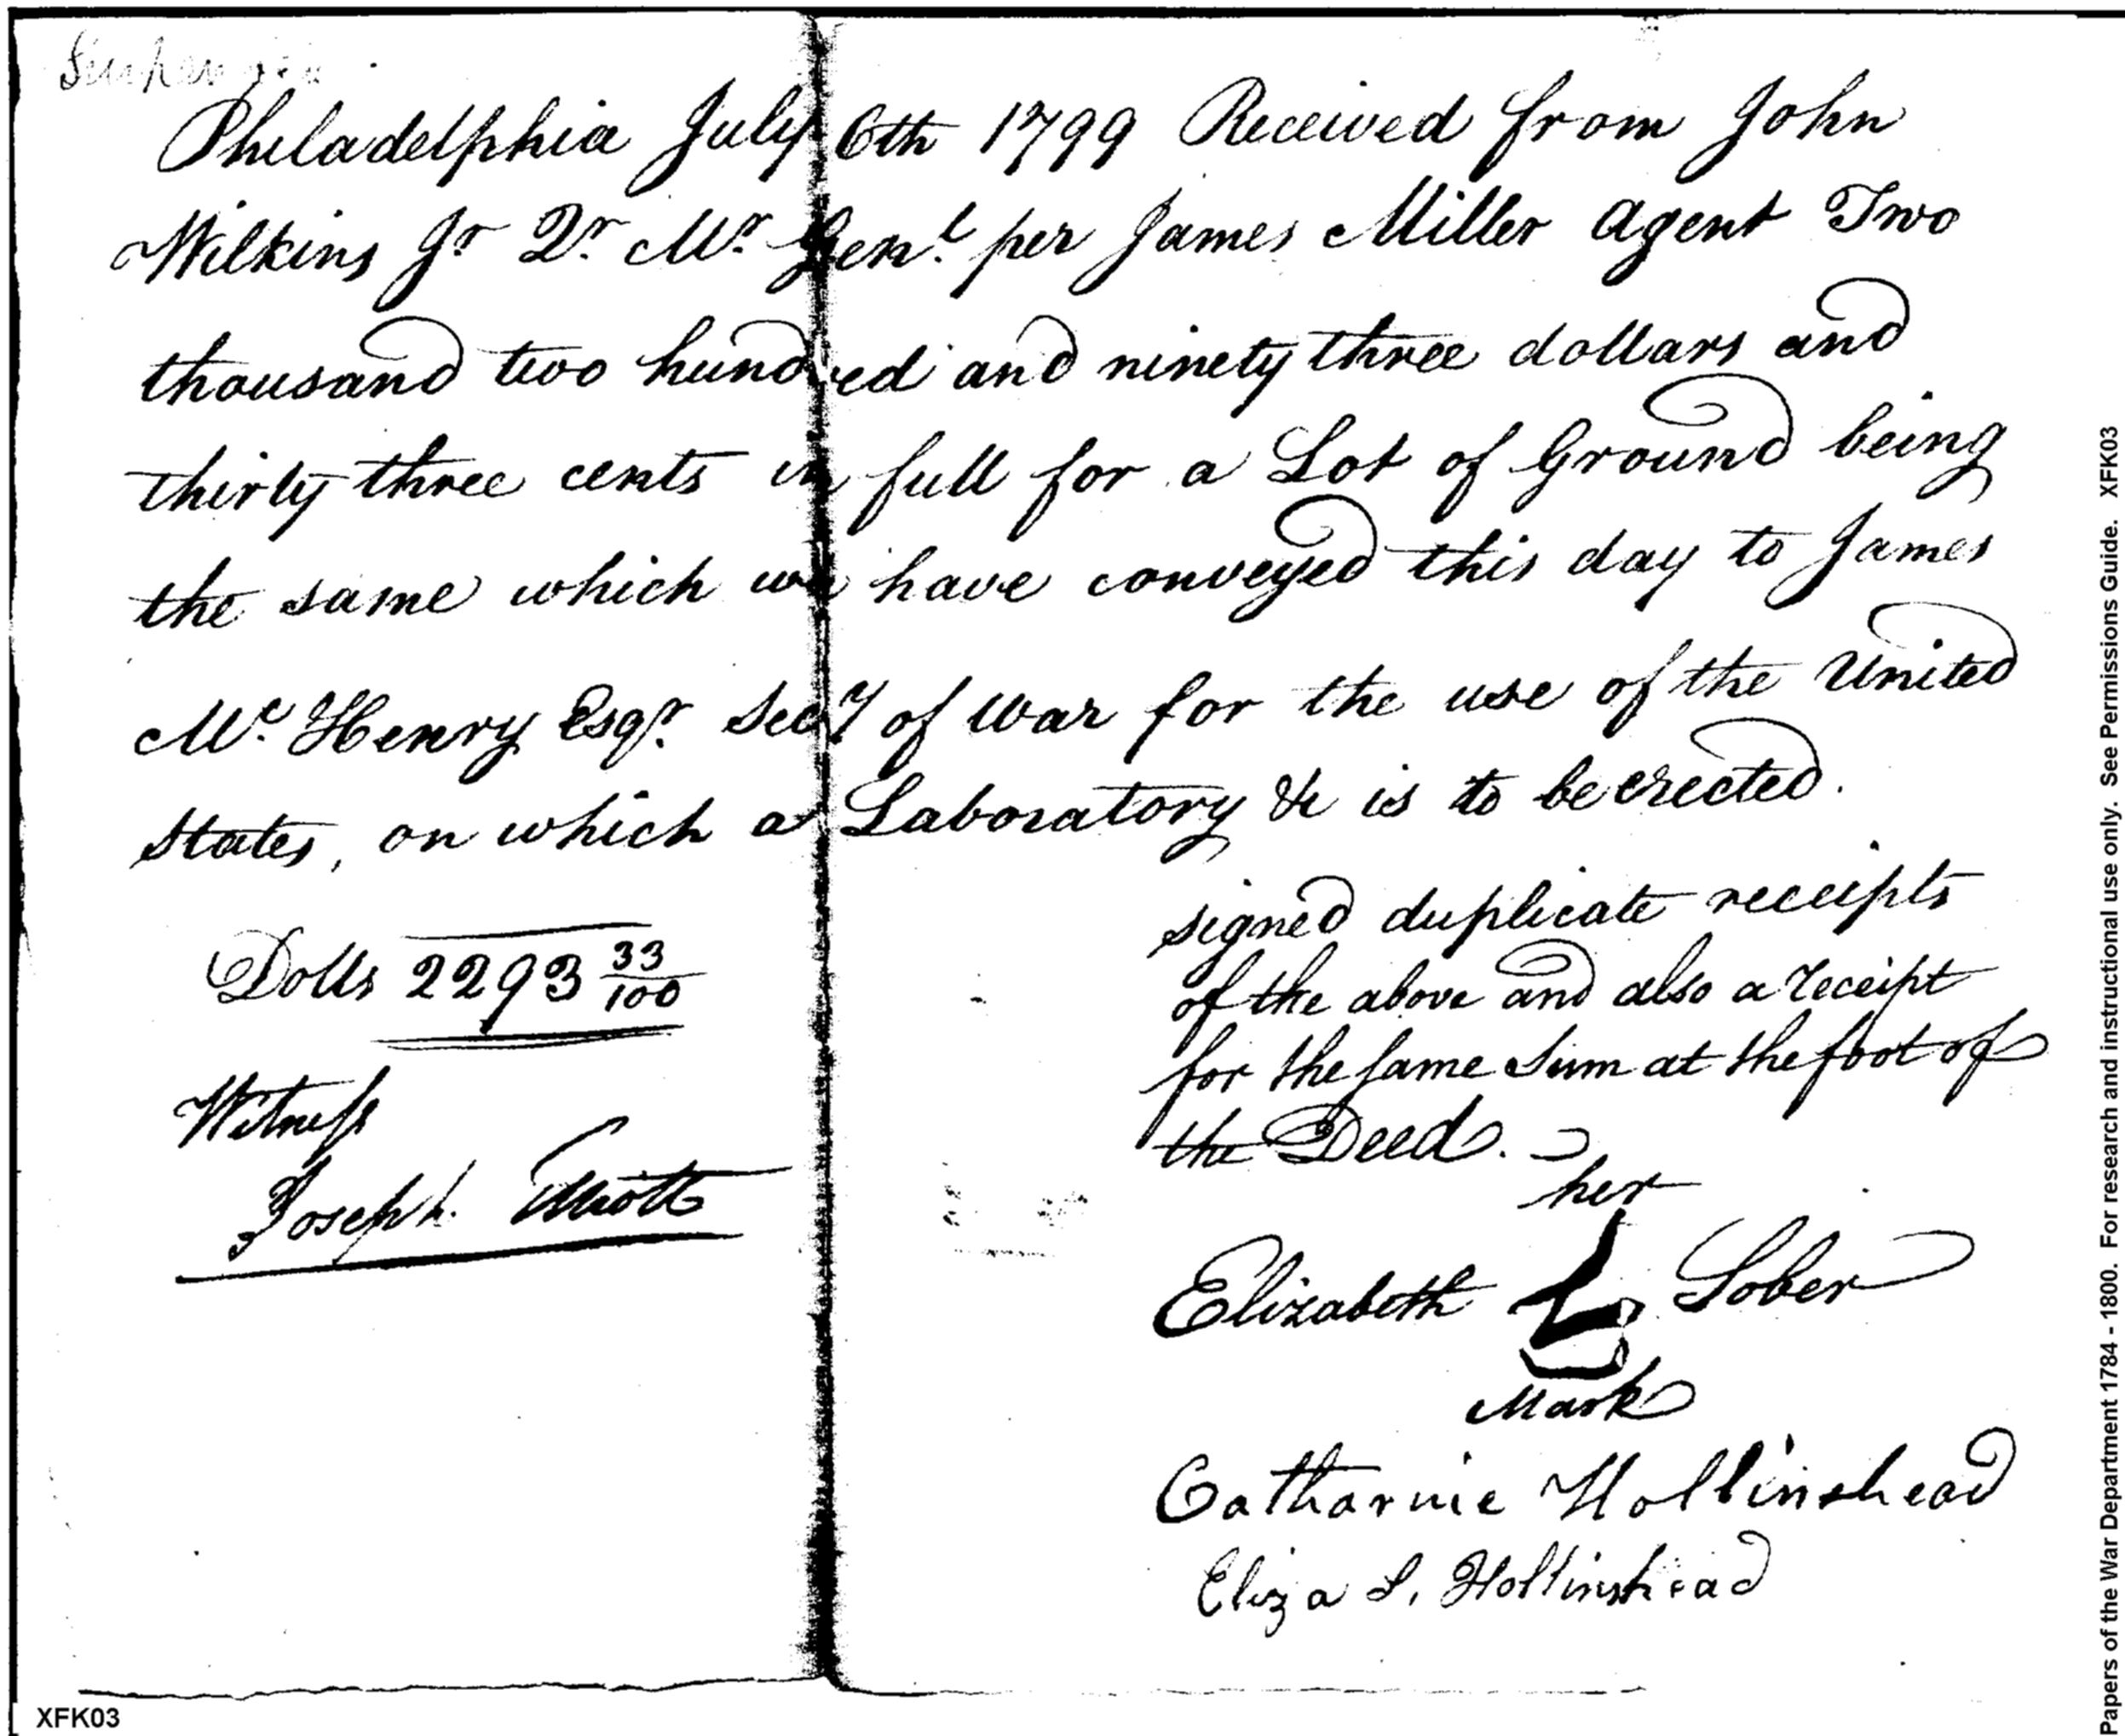 Philadelphia July 6th 1799 Received from John
Wilkins Jr Qr. Mr. Genl. per James Miller Agent Two
thousand two hundred and ninety three dollars and
thirty three cents in full for a Lot of Ground being
the same which we have conveyed this day to James
Mc. Henry Esqr. Secy of War for the use of the United
States, on which a Laboratory &c is to be erected.
signed duplicate receipts
of the above and also a receipt
for the same sum at the foot of
the Deed.
Dolls 2293 33/100
Witness
Joseph
her
Elizabeth Sober
Mark
Catharine Hollinshead
Eliza S. Hollinshead
XFK03
Papers of the War Department 1784 - 1800. For research and instructional use only. See Permissions Guide. XFK03